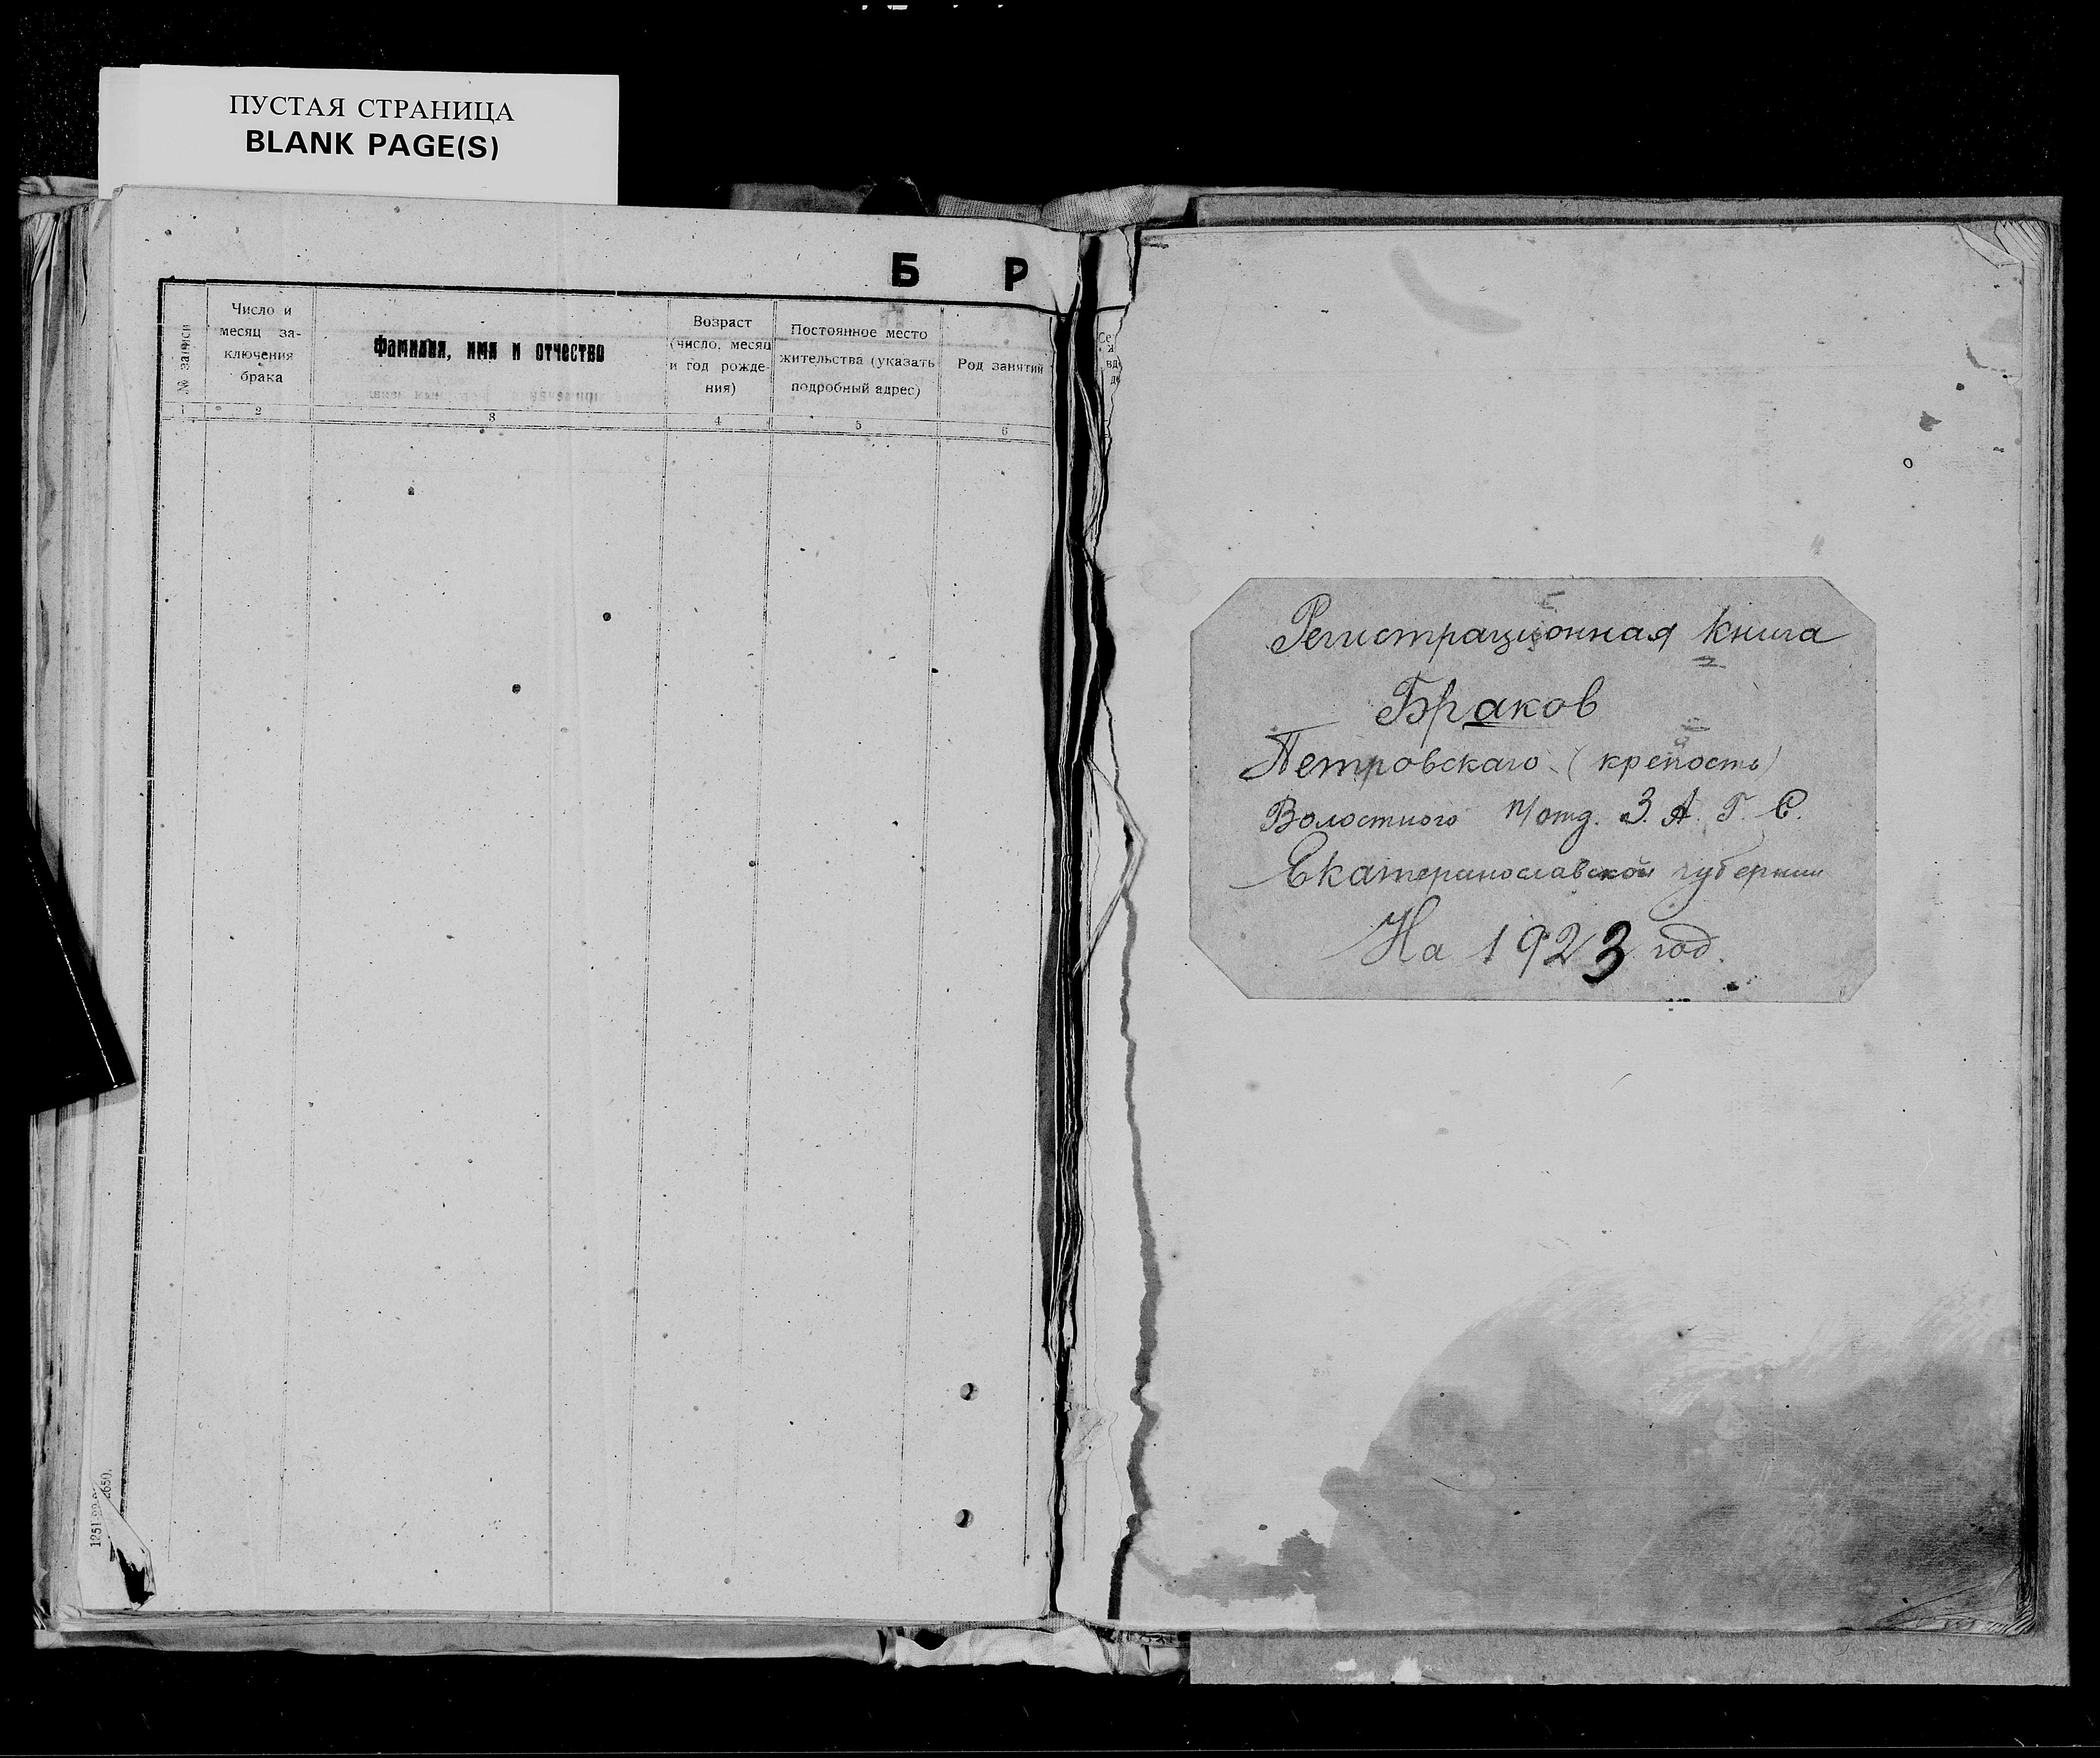 ПУСТАЯ СТРАНИЦА
BLANK PAGE(S)
Б Р
№ записи
Число и
месяц за-
ключения
брака
Фамилия, имя и отчество
Возраст
(число, месяц
и год рожде-
ния)
Постоянное место
жительства (указать
подробный адрес)
Род занятий
1 2 3 4 5 6
Регистрационная книга
Браков
Петровскаго (крепость)
Волостного п/отд. З. А. Г. С.
Екатеринославской губернии
На 1923 год.